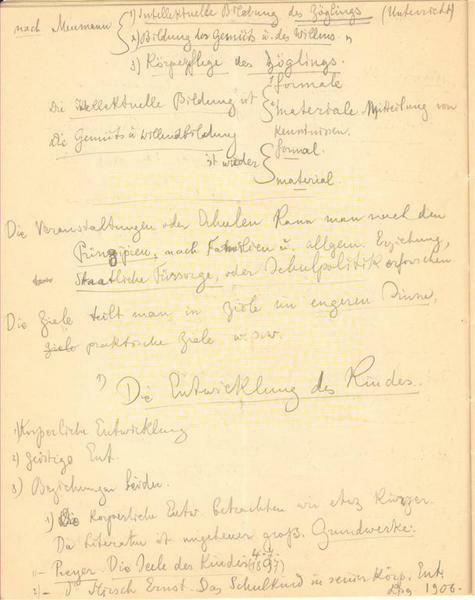 1) Intellektuelle Bildung des Zöglings (Unterricht)
nach Meumann { 2) Bildung des Gemüts u. des Willens "
3) Körperpflege des Zöglings.
Die intellektuelle Bildung ist { 1 formale
2 materiale Mitteilung von
Kenntnissen.
Die Gemüts u Willensbildung
ist wieder { formal.
material.
Die Veranstaltungen oder Schulen kann man nach den
Prinzipien, nach Familien u. allgem. Erziehung,
Staatliche Fürsorge, oder Schulpolitik erforschen
Die Ziele teilt man in Ziele im engeren Sinne,
praktische Ziele u.s.w.
1) Die Entwicklung des Kindes.
1) Körperliche Entwicklung
2) geistige Ent.
3) Beziehungen beider.
1) Die körperliche Entw. betrachten wir etwas kürzer.
Die Literatur ist ungeheuer groß. Grundwerke:
1 - Preyer. Die Seele des Kindes
2) - Ernst. Das Schulkind in seiner Körp. Ent.
1906.